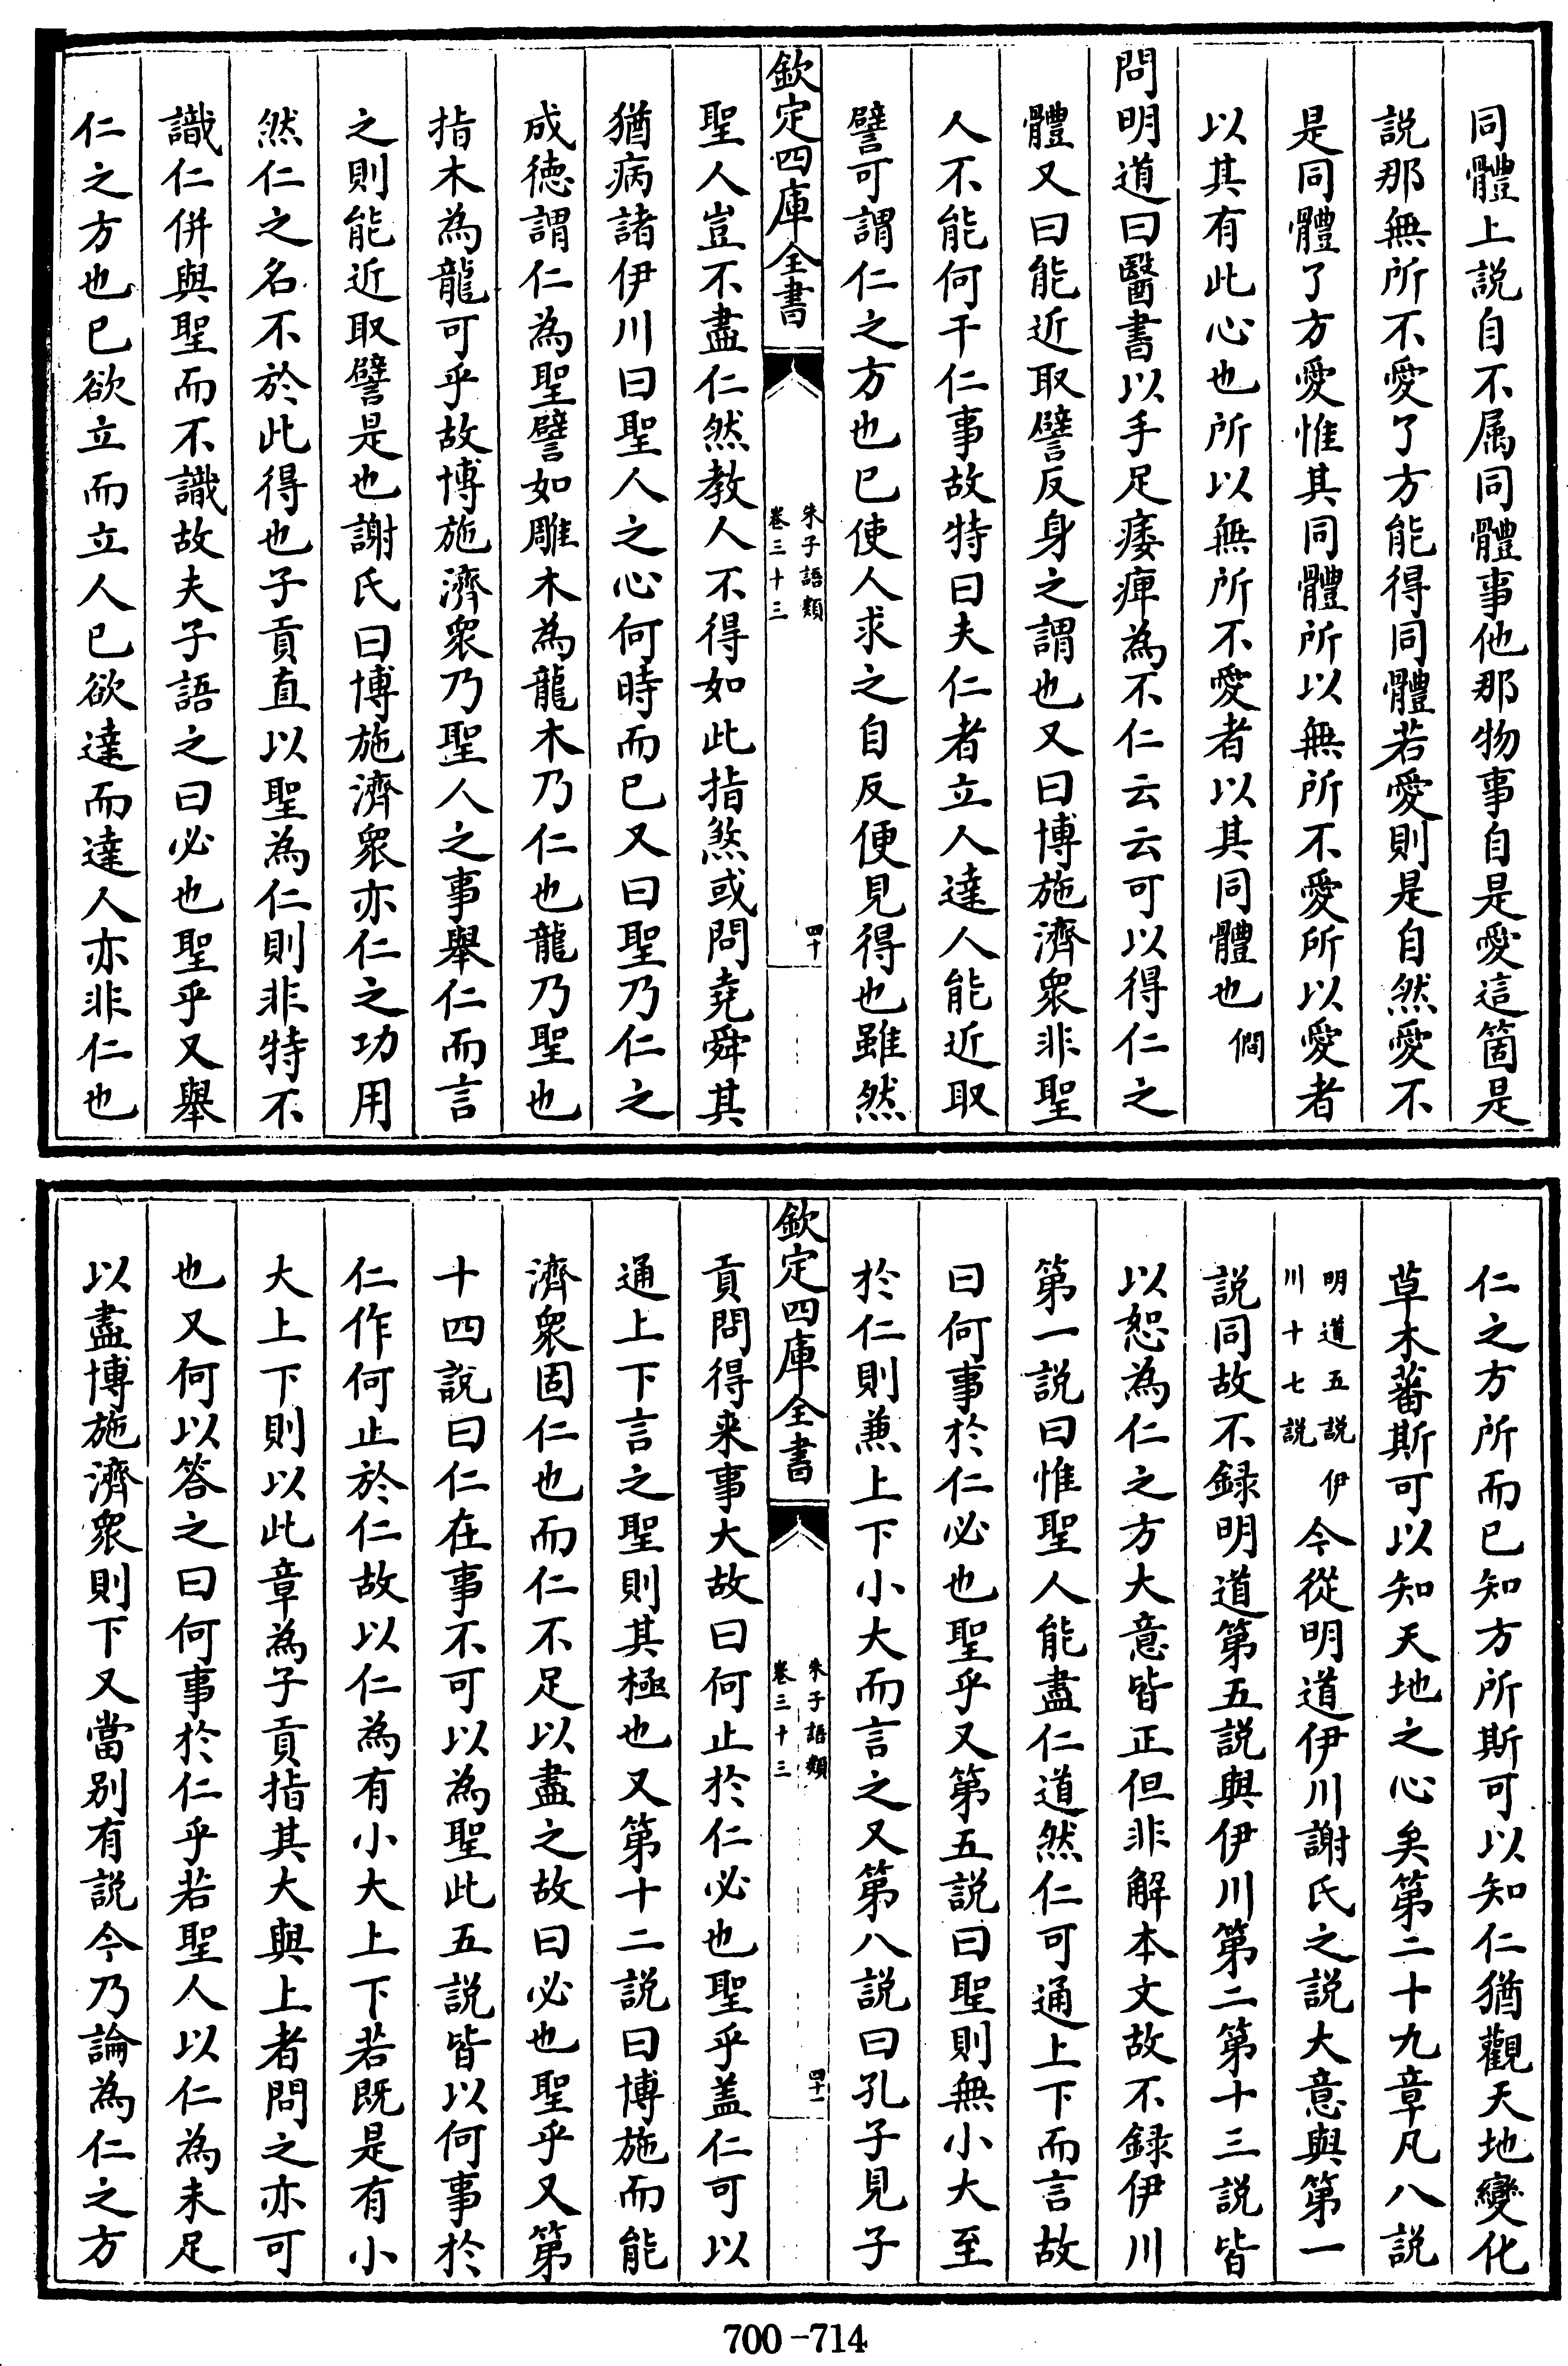 同體上説自不属同體事他那物事自是愛這箇是
説那無所不愛了方能得同體若愛則是自然愛不
是同體了方愛惟其同體所以無所不愛所以愛者
以其有此心也所以無所不愛者以其同體也 僩
問明道曰醫書以手足痿痺為不仁云云可以得仁之
體又曰能近取譬反身之謂也又曰博施濟衆非聖
人不能何干仁事故特曰夫仁者立人達人能近取
譬可謂仁之方也已使人求之自反便見得也雖然
欽定四庫全書
朱子語類
卷三十三
四十
聖人豈不盡仁然教人不得如此指煞或問堯舜其
猶病諸伊川曰聖人之心何時而已又曰聖乃仁之
成徳謂仁為聖譬如雕木為龍木乃仁也龍乃聖也
指木為龍可乎故博施濟衆乃聖人之事舉仁而言
之則能近取譬是也謝氏曰博施濟衆亦仁之功用
然仁之名不於此得也子貢直以聖為仁則非特不
識仁併與聖而不識故夫子語之曰必也聖乎又舉
仁之方也已欲立而立人已欲達而達人亦非仁也
仁之方所而已知方所斯可以知仁猶觀天地變化
草木蕃斯可以知天地之心矣第二十九章凡八説
明道五説 伊
川十七説
今從明道伊川謝氏之説大意與第一
説同故不録明道第五説與伊川第二第十三説皆
以恕為仁之方大意皆正但非解本文故不録伊川
第一説曰惟聖人能盡仁道然仁可通上下而言故
曰何事於仁必也聖乎又第五説曰聖則無小大至
於仁則兼上下小大而言之又第八説曰孔子見子
欽定四庫全書
朱子語類
卷三十三
四十一
貢問得来事大故曰何止於仁必也聖乎盖仁可以
通上下言之聖則其極也又第十二説曰博施而能
濟衆固仁也而仁不足以盡之故曰必也聖乎又第
十四説曰仁在事不可以為聖此五説皆以何事於
仁作何止於仁故以仁為有小大上下若既是有小
大上下則以此章為子貢指其大與上者問之亦可
也又何以答之曰何事於仁乎若聖人以仁為未足
以盡博施濟衆則下又當别有説今乃論為仁之方
700-714